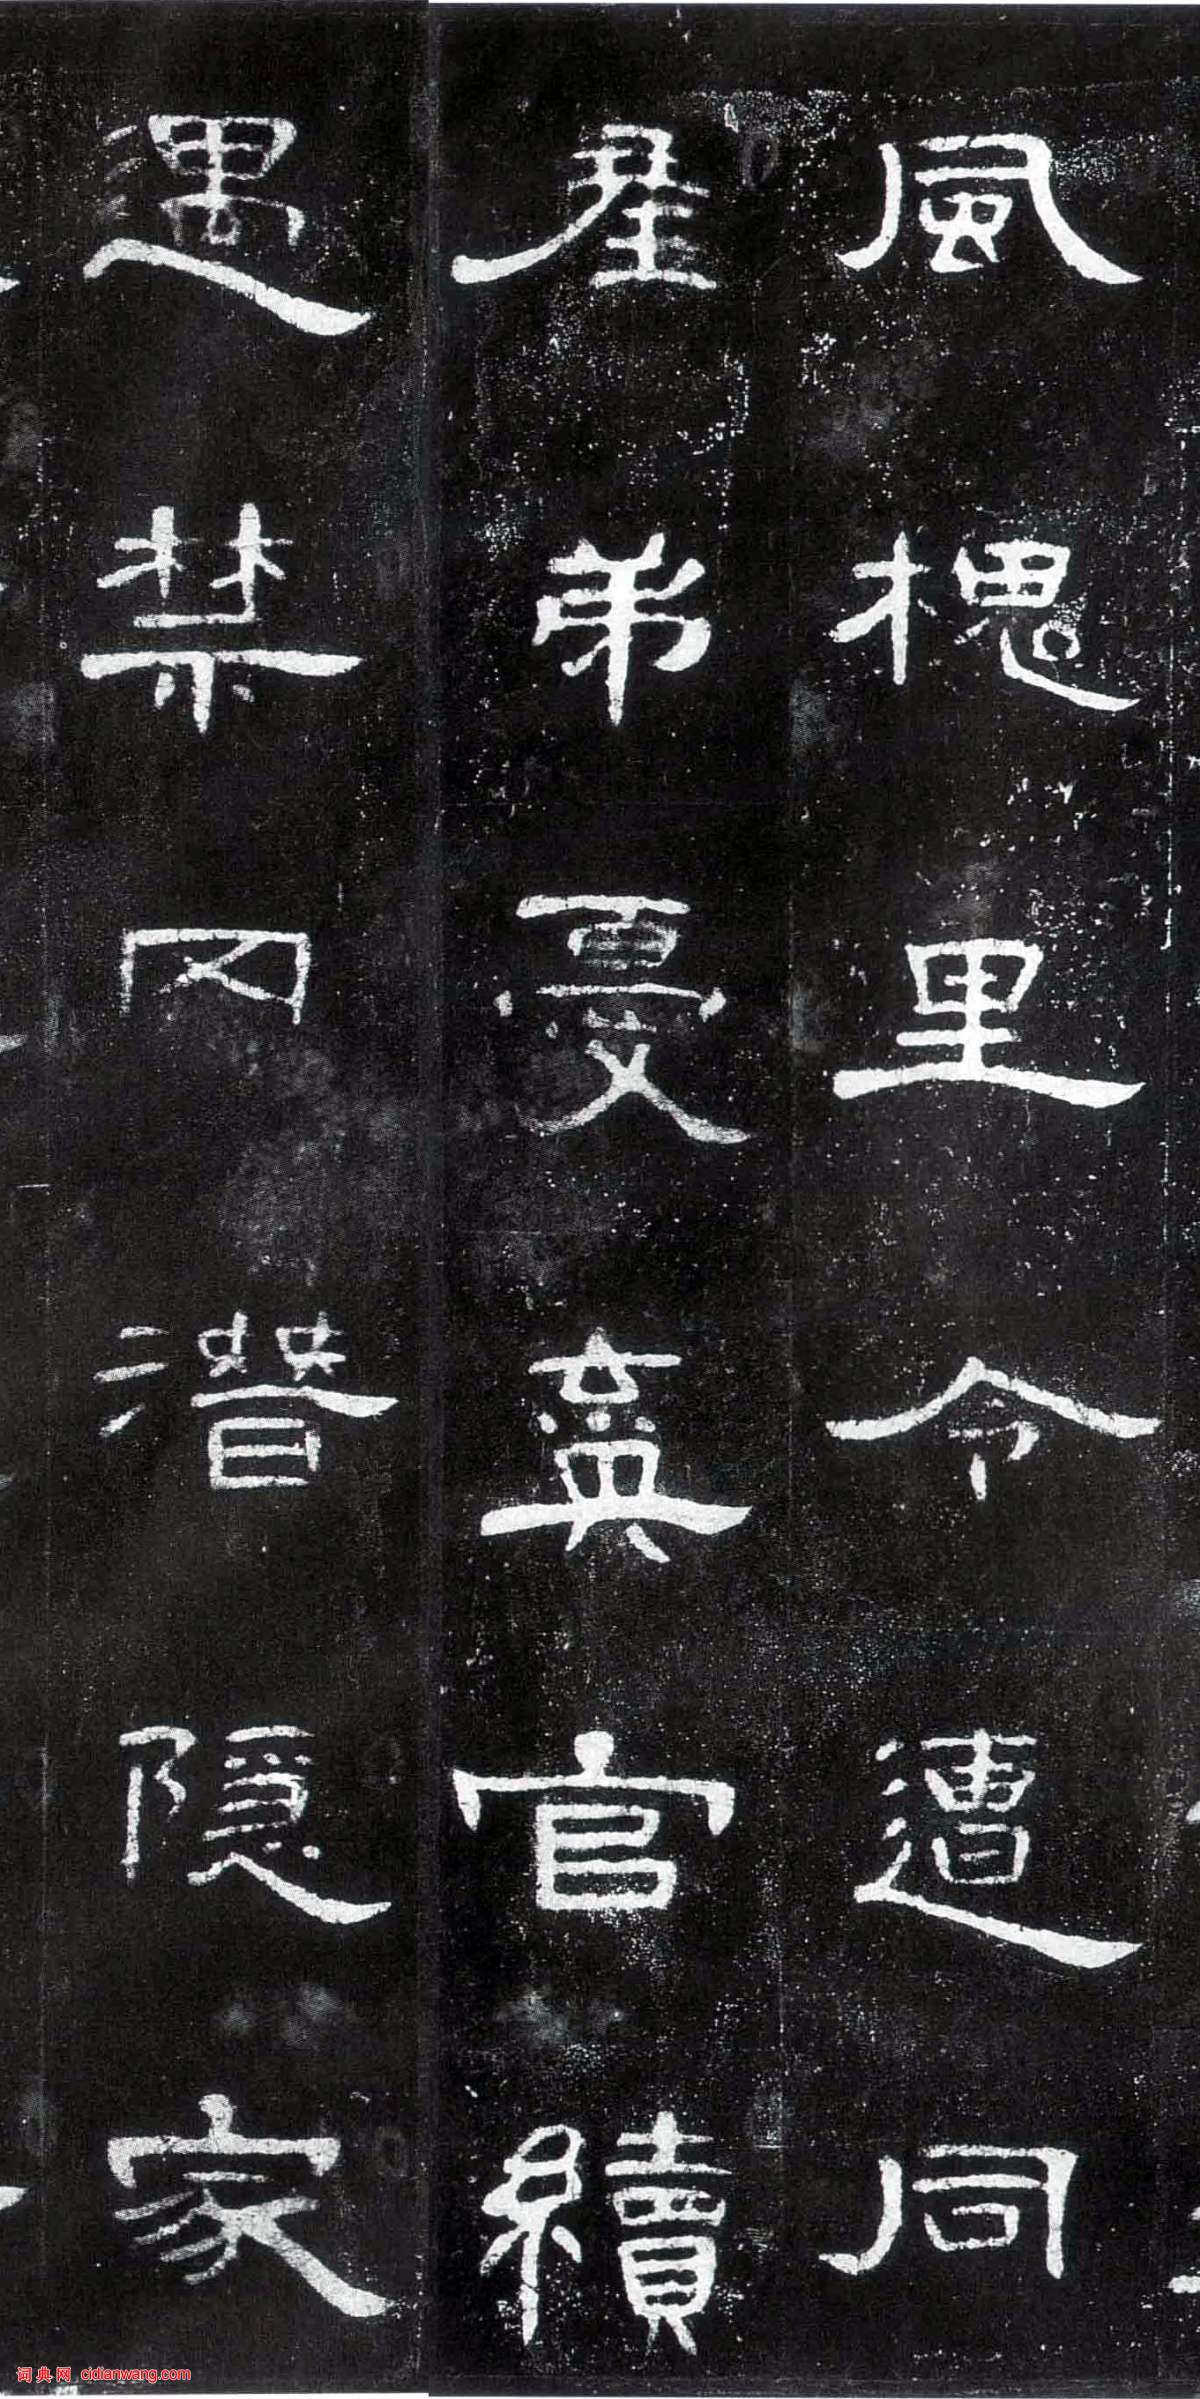 風槐里令遭同
產弟憂棄官續
遇禁冈潛隱家
词典网 cidianwang.com